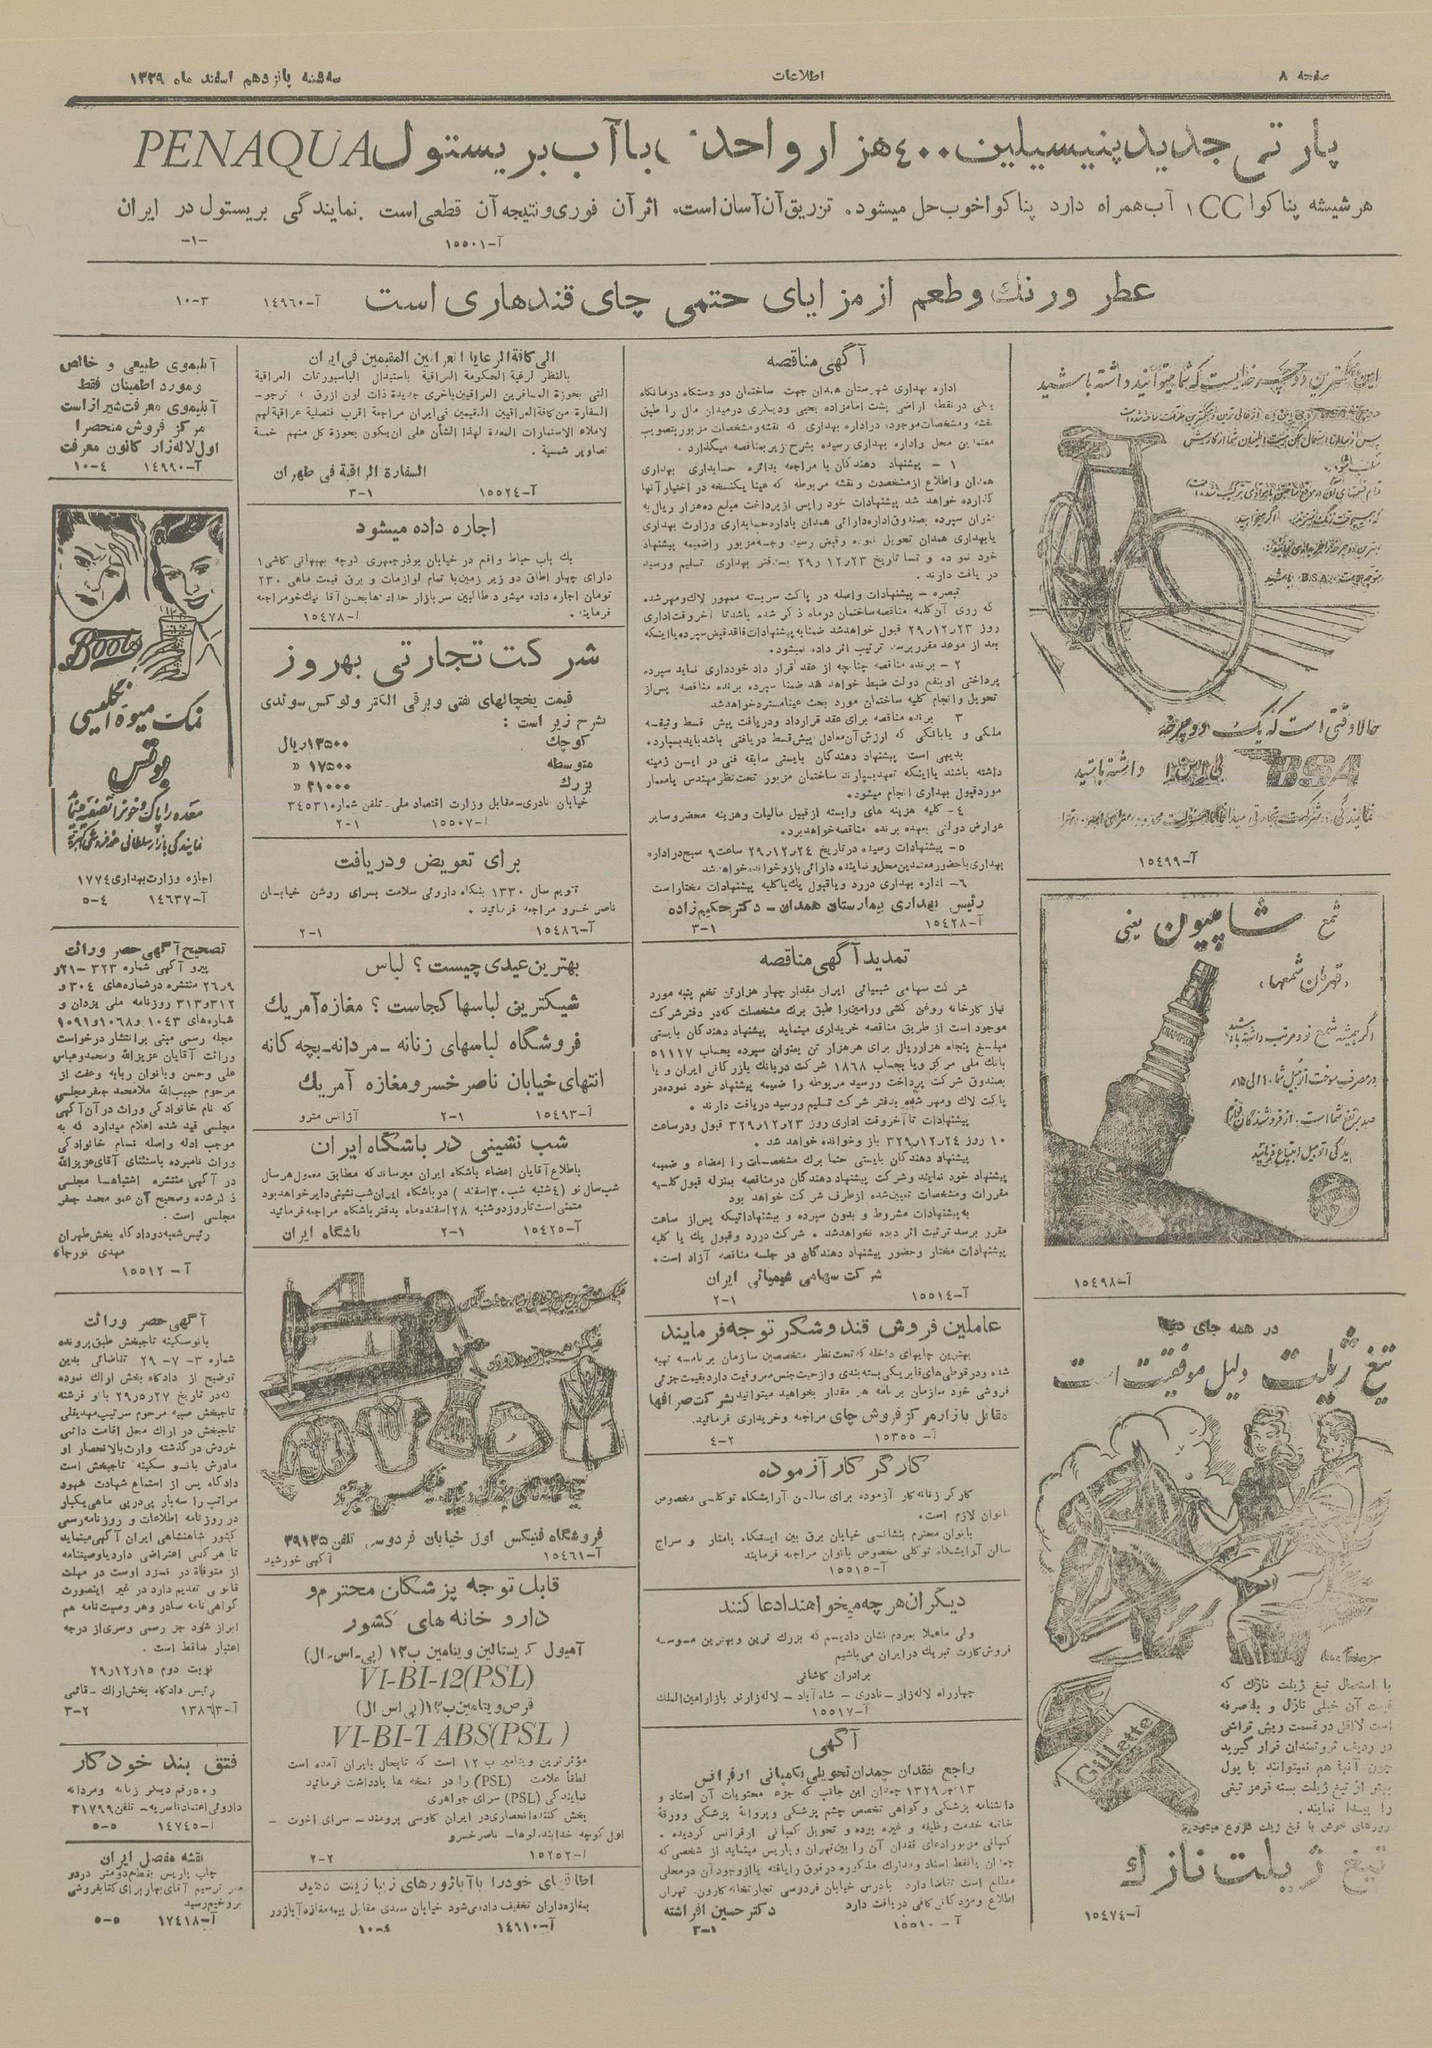 صفحه ۸
اطلاعات
سه شنبه پانزدهم اسفند ماه ۱۳۲۹
پارتی جدید پنیسیلین ۴۰۰ هزار واحدی با آب بریستول PENAQUA
هر شیشه پناکوا ۱CC آب همراه دارد پناکوا خوب حل میشود. تزریق آن آسان است. اثر آن فوری و نتیجه آن قطعی است. نمایندگی بریستول در ایران
آ-۱۵۵۰۱
-۱-
عطر ورنك وطعم از مزایای حتمی چای قندهاری است
آ-۱۴۹۶۰
۱۰-۳
دوچرخه ایست که شما میتوانید داشته باشید
حالا وقتی است که یک دوچرخه
BSA
بی اس ا
داشته باشید
آ-۱۵۴۹۹
شمع
شامپیون یعنی
«قهرمان شمعها»
اگر همیشه شمع نو و مرتب داشته باشید
در مصرف سوخت اتومبیل شما ۱۰ الی ۱۵
صد به نفع شما است. از فروشندگان لوازم
یدکی اتومبیل ابتیاع فرمائید
آ-۱۵۴۹۸
در همه جای دنیا
تیغ ژیلت دلیل موفقیت است
با استعمال تیغ ژیلت نازك که
قیمت آن خیلی نازل و با صرفه
است لااقل در قسمت ریش تراشی
در ردیف ثروتمندان قرار گیرید
چون آنها هم نمیتوانند با پول
بهتر از تیغ ژیلت بسته قرمز تیغی
را پیدا نمایند.
روزهای خوش با تیغ ژیلت شروع میشود
Gillette
تیغ ژیلت نازك
آ-۱۵۴۷۴
آگهی مناقصه
اداره بهداری شهرستان همدان جهت ساختمان دو دستگاه درمانگاه
یکی در نقطه اراضی پشت امامزاده یحیی و دیگری در میدان مال را طبق
نقشه و مشخصات موجود در اداره بهداری که نقشه و مشخصات مزبور بتصویب
معتمدین محل و اداره بهداری رسیده بشرح زیر بمناقصه میگذارد.
۱ - پیشنهاد دهندگان با مراجعه بدائره حسابداری بهداری
همدان و اطلاع از مشخصات و نقشه مربوطه که عینا یکنسخه در اختیار آنها
گذارده خواهد شد پیشنهادات خود را پس از پرداخت مبلغ ده هزار ریال به
عنوان سپرده بصندوق اداره دارائی همدان یا اداره حسابداری وزارت بهداری
یا بهداری همدان تحویل نموده وقبض رسید وجه مزبور را ضمیمه پیشنهاد
خود نموده و تا تاریخ ۲۳ر۱۲ر۲۹ بدفتر بهداری تسلیم و رسید
دریافت دارند.
تبصره - پیشنهادات واصله در پاکت سربسته ممهور لاك و مهر شده
که روی آن کلمه مناقصه ساختمان درمانگاه ذکر شده باشد تا آخر وقت اداری
روز ۲۳ر۱۲ر۲۹ قبول خواهد شد ضمنا به پیشنهادات فاقد قبض سپرده یا اینکه
بعد از موعد مقرر برسد ترتیب اثر داده نمیشود.
۲ - برنده مناقصه چنانچه از عقد قرار داد خودداری نماید سپرده
پرداختی او بنفع دولت ضبط خواهد شد ضمنا سپرده برنده مناقصه پس از
تحویل و انجام کلیه ساختمان مورد بحث عینا مسترد خواهد شد.
۳ برنده مناقصه برای عقد قرارداد و دریافت پیش قسط وثیقه
ملکی و یا بانکی که ارزش آن معادل پیش قسط دریافتی باشد باید بسپارد.
بدیهی است پیشنهاد دهندگان بایستی سابقه فنی در این زمینه
داشته باشند یا اینکه تعهد بسپارند ساختمان مزبور تحت نظر مهندس یا معمار
مورد قبول بهداری انجام میشود.
۴ - کلیه هزینه های وابسته از قبیل مالیات و هزینه محضر و سایر
عوارض دولتی بعهده برنده مناقصه خواهد بود.
۵ - پیشنهادات رسیده در تاریخ ۲۴ر۱۲ر۲۹ ساعت ۹ صبح در اداره
بهداری با حضور معتمدین محل و نماینده دارائی باز و خوانده خواهد شد
۶ - اداره بهداری در رد و یا قبول یك یا کلیه پیشنهادات مختار است
رئیس بهداری بیمارستان همدان - دکتر حکیم زاده
آ-۱۵۴۲۸
۳-۱
تمدید آگهی مناقصه
شرکت سهامی شیمیائی ایران مقدار چهار هزار تن تخم پنبه مورد
نیاز کارخانه روغن کشی ورامین را طبق برك مشخصات که در دفتر شرکت
موجود است از طریق مناقصه خریداری مینماید پیشنهاد دهندگان بایستی
مبلغ پنجاه هزار ریال برای هر هزار تن بعنوان سپرده بحساب ۵۱۱۱۷
بانك ملی مرکز و یا بحساب ۱۸۶۸ شرکت در بانك بازرگانی ایران و یا
بصندوق شرکت پرداخت ورسید مربوطه را ضمیمه پیشنهاد خود نموده در
پاکت لاك ومهر شده بدفتر شرکت تسلیم ورسید دریافت دارند.
پیشنهادات تا آخر وقت اداری روز ۲۳ر۱۲ر۳۲۹ قبول و در ساعت
۱۰ روز ۲۴ر۱۲ر۳۲۹ باز و خوانده خواهد شد.
پیشنهاد دهندگان بایستی حتما برك مشخصات را امضاء و ضمیمه
پیشنهاد خود نمایند وشرکت پیشنهاد دهندگان در مناقصه بمنزله قبول کلیه
مقررات ومشخصات تعیین شده از طرف شرکت خواهد بود
به پیشنهادات مشروط و بدون سپرده و پیشنهاداتیکه پس از ساعت
مقرر برسد ترتیب اثر داده نخواهد شد. شرکت در رد وقبول یك یا کلیه
پیشنهادات مختار وحضور پیشنهاد دهندگان در جلسه مناقصه آزاد است.
شرکت سهامی شیمیائی ایران
آ-۱۵۵۱۴
۲-۱
عاملین فروش قند وشکر توجه فرمایند
بهترین چایهای داخله که تحت نظر متخصصین سازمان برنامه تهیه
شده و در قوطی های فابریکی بسته بندی و از حیث جنس معروفیت دارد بقیمت جزئی
فروشی خود سازمان برنامه هر مقدار بخواهید میتوانید بشرکت صرافها
مقابل بازار مرکز فروش چای مراجعه وخریداری فرمائید.
آ-۱۵۳۵۵
۴-۲
کارگر کار آزموده
کارگر زنانه کار آزموده برای سالن آرایشگاه توکلی مخصوص
بانوان لازم است.
بانوان محترم بنشانی خیابان برق بین ایستگاه بامنار و سراج
سالن آرایشگاه توکلی مخصوص بانوان مراجعه فرمایند
آ-۱۵۵۱۵
دیگران هر چه میخواهند ادعا کنند
ولی ما عملا بمردم نشان دادیم که بزرك ترین و بهترین موسسه
فروش کارت تبریك در ایران می باشیم
برادران کاشانی
چهارراه لاله زار - نادری - شاه آباد - لاله زار نو بازار امین الملك
آ-۱۵۵۱۷
آگهی
راجع فقدان چمدان تحویلی بکمپانی ارفرانس
۱۳ مهر ۱۳۲۹ چمدان این جانب که جزء محتویات آن اسناد و
دانشنامه پزشکی و گواهی تخصص چشم پزشکی و پروانه پزشکی وورقه
خاتمه خدمت وظیفه و غیره بوده و تحویل کمپانی ارفرانس گردیده.
کمپانی مزبور ادعای فقدان آن را بین تهران و پاریس مینماید از شخصی که
چمدان یا فقط اسناد ومدارك مذکوره در فوق را یافته یا از وجود آن در محلی
مطلع است تقاضا دارد بادرس خیابان فردوسی تجارتخانه کارون تهران
اطلاع ومژدگانی کافی دریافت دارد
دکتر حسین افراشته
آ-۱۵۵۱۰
۳-۱
الی کافة الرعایا العراقیین المقیمین فی ایران
بالنظر لرغبة الحکومة العراقیة باستبدال الباسبورتات العراقیة
التی بحوزة المسافرین العراقیین باخری جدیدة ذات لون ازرق، ترجو
السفارة من کافة العراقیین المقیمین فی ایران مراجعة اقرب قنصلیة عراقیة لهم
لاملاء الاستمارات المعدة لهذا الشأن علی ان یکون بحوزة کل منهم خمسة
تصاویر شمسیة.
السفارة العراقیة فی طهران
آ-۱۵۵۲۴
۳-۱
اجاره داده میشود
یك باب حیاط واقع در خیابان بوذرجمهری کوچه بهبهانی کاشی ۱
دارای چهار اطاق دو زیر زمین با تمام لوازمات و برق قیمت ماهی ۲۳۰
تومان اجاره داده میشود طالبین سر بازار حدادها بحسن آقا نیك خو مراجعه
فرمایند.
آ-۱۵۴۷۸
شرکت تجارتی بهروز
قیمت یخچالهای نفتی و برقی الکترولوکس سوئدی
بشرح زیر است:
کوچك ۱۳۵۰۰ ریال
متوسطه ۱۷۵۰۰ «
بزرك ۲۱۰۰۰ «
خیابان نادری-مقابل وزارت اقتصاد ملی. تلفن شماره ۳۴۵۳۱
آ-۱۵۵۰۷
۲-۱
برای تعویض ودریافت
تقویم سال ۱۳۳۰ بنگاه داروئی سلامت بسرای روشن خیابان
ناصر خسرو مراجعه فرمائید.
آ-۱۵۴۸۶
۲-۱
بهترین عیدی چیست؟ لباس
شیکترین لباسها کجاست؟ مغازه آمریك
فروشگاه لباسهای زنانه - مردانه - بچه گانه
انتهای خیابان ناصر خسرو مغازه آمریك
آ-۱۵۴۹۳
۲-۱
آژانس مترو
شب نشینی در باشگاه ایران
باطلاع آقایان اعضاء باشگاه ایران میرساند که مطابق معمول هر سال
شب سال نو (۴شنبه شب ۳۰ اسفند) در باشگاه ایران شب نشینی دایر خواهد بود
متمنی است تا روز دوشنبه ۲۸ اسفند ماه بدفتر باشگاه مراجعه فرمائید
آ-۱۵۴۲۵
۲-۱
باشگاه ایران
فروشگاه فنیکس اول خیابان فردوسی تلفن ۳۹۱۳۵
آ-۱۵۴۶۱
آگهی خورشید
قابل توجه پزشکان محترم و
دارو خانه های کشور
آمپول کریستالین ویتامین ب۱۲ (پی-اس-ال)
VI-BI-12(PSL)
قرص ویتامین ب۱۲ (پی اس ال)
VI-BI-TABS(PSL)
مؤثرترین ویتامین ب ۱۲ است که تابحال بایران آمده است
لطفاً علامت (PSL) را در نسخه ها یادداشت فرمائید
نمایندگی (PSL) سرای جواهری
پخش کننده انحصاری در ایران کاوسی برومند - سرای اخوت -
اول کوچه خدابنده لوها - ناصر خسرو
آ-۱۵۲۵۲
۲-۲
اطاقهای خود را با آباژورهای زیبا زینت دهید
بمغازه داران تخفیف داده می شود خیابان سعدی مقابل بیمه مغازه آباژور
آ-۱۴۶۱۰
۱۰-۴
آبلیموی طبیعی و خالص
ومورد اطمینان فقط
آبلیموی معرفت شیراز است
مرکز فروش منحصرا
اول لاله زار کانون معرفت
آ-۱۴۹۹۰
۱۰-۴
Boots
نمک میوه انگلیسی
بوتس
معده را پاک و خون را تصفیه مینماید
اجازه وزارت بهداری ۱۷۷۴
آ-۱۴۶۳۷
۵-۴
تصحیح آگهی حصر وراثت
پیرو آگهی شماره ۳۲۳ - ۲۱ر
۲۶ر۹ منتشره در شماره های ۳۰۴ و
۳۱۲ و ۳۱۳ روزنامه ملی یزدان و
شماره های ۱۰۴۳ و ۱۰۶۸ و ۱۰۹۱
مجله رسمی مبنی بر انتشار درخواست
وراثت آقایان عزیزالله ومحمد وعباس
علی وحسن وبانوان ربابه وعفت از
مرحوم حبیب الله ملامحمد جعفر مجلسی
که نام خانوادگی وراث در آن آگهی
مجلسی قید شده اعلام میدارد که به
موجب ادله واصله تمام خانوادگی
وراث نامبرده باستثنای آقای عزیزالله
در آگهی منتشره اشتباها مجلسی
ذکر شده وصحیح آن عمو محمد جعفر
مجلسی است.
رئیس شعبه دو دادگاه بخش طهران
مهدی نورجاه
آ - ۱۵۵۱۲
آگهی حصر وراثت
بانو سکینه تاجبخش طبق پرونده
شماره ۳ - ۷ - ۲۹ تقاضائی بدین
توضیح از دادگاه بخش اراك نموده
که در تاریخ ۲۷ر۵ر۲۹ بانو فرشته
تاجبخش صبیه مرحوم سرتیپ مهدیقلی
تاجبخش در اراك محل اقامت دائمی
خودش درگذشته وارث بالانحصار او
مادرش بانو سکینه تاجبخش است
دادگاه پس از استماع شهادت شهود
مراتب را سه بار پی در پی ماهی یکبار
در روزنامه اطلاعات و روزنامه رسمی
کشور شاهنشاهی ایران آگهی مینماید
تا هر کسی اعتراضی دارد یا وصیتنامه
از متوفاة در نزد اوست در مهلت
قانونی تقدیم دارد در غیر اینصورت
گواهی نامه صادر وهر وصیت نامه هم
ابراز شود جز رسمی وسری از درجه
اعتبار ساقط است.
نوبت دوم ۱۵ر۱۲ر۲۹
رئیس دادگاه بخش اراك - قائمی
آ-۱۳۸۶۳
۳-۲
فتق بند خودکار
داروئی اعتماد ناصریه - تلفن ۳۱۷۹۹
آ-۱۴۷۴۵
۵-۵
نقشه مفصل ایران
چاپ پاریس بقطع دو متر در دو
متر ترسیم آقای بهار برای کتابفروشی
بروخیم رسید
آ-۱۷۴۱۸
۵-۵